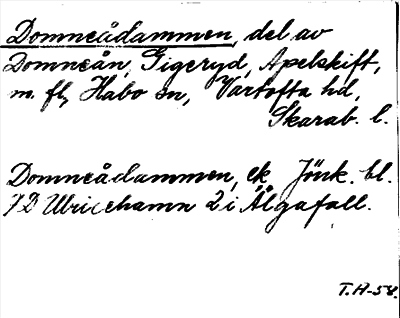 Domneådammen, del av
Domneån, Gigeryd, Apelskift,
m. fl, Habo sn, Vartofta hd,
Skarab. l.
Domneådammen, ek Jönk. bl.
7D Ulricehamn 2i Älgafall.
T.H-58.